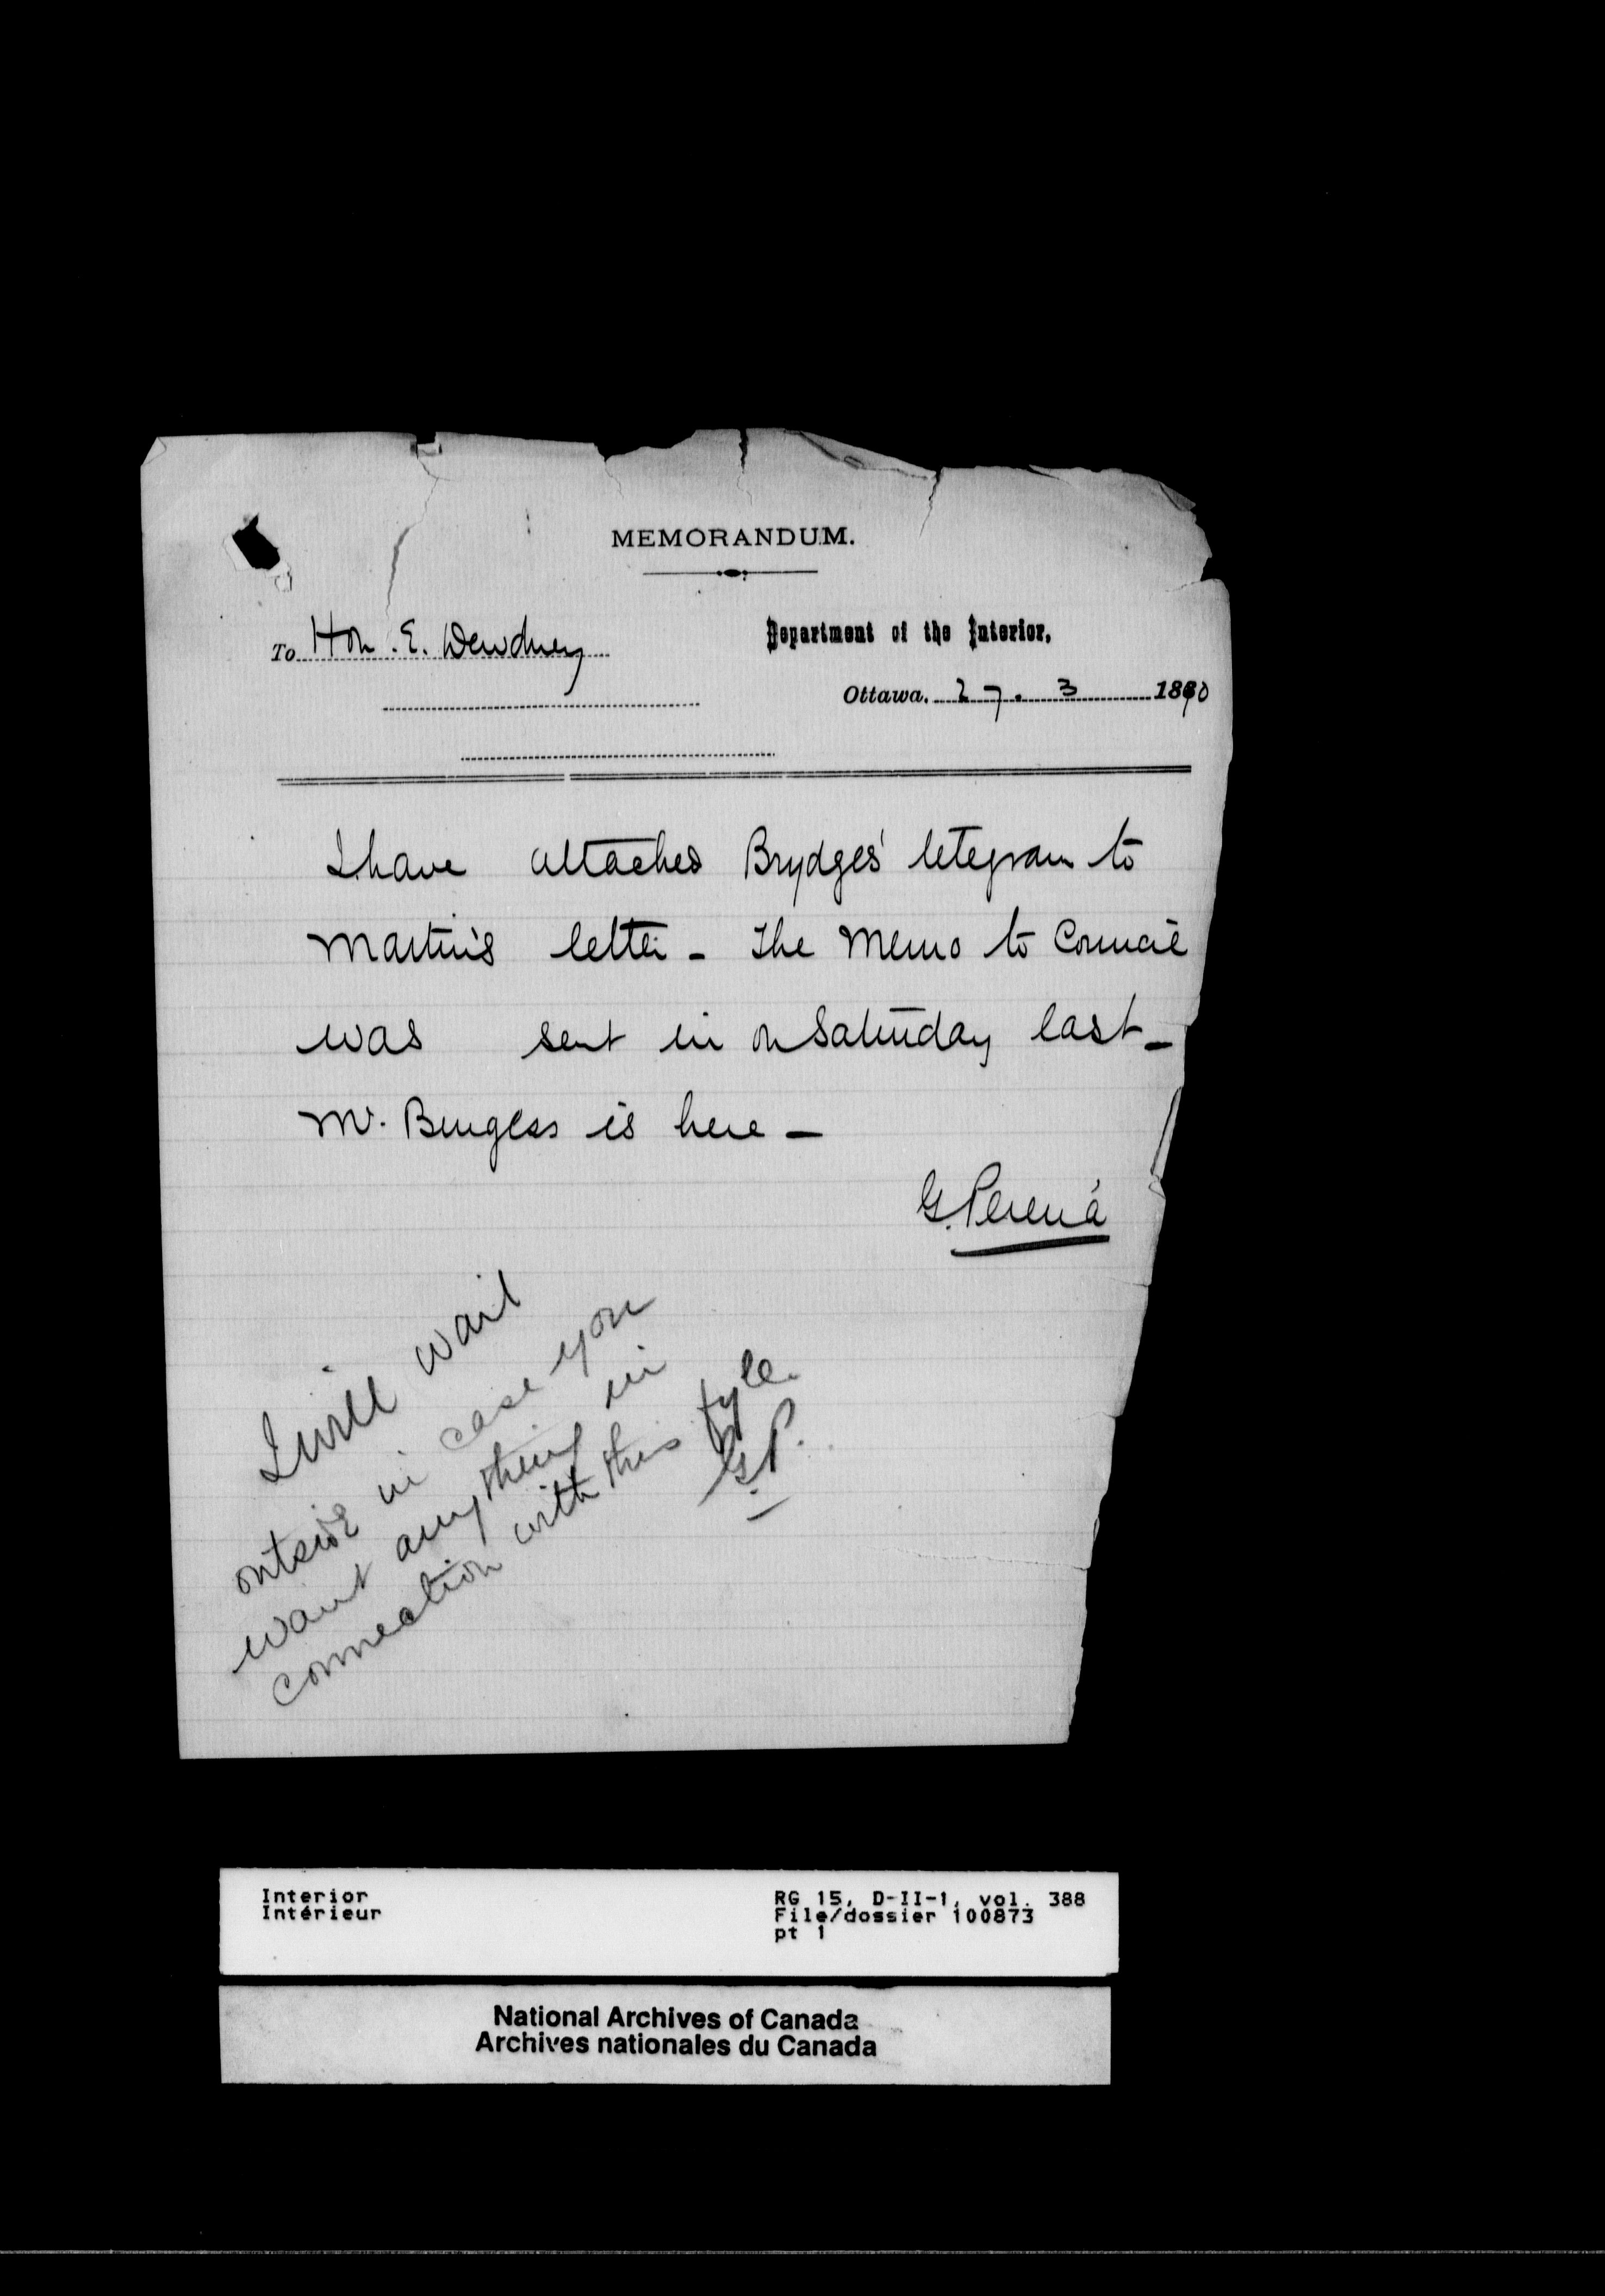 MEMORANDUM.
To Hon. E. Dewdney
Department of the Interior,
Ottawa. 27. 3 1890
I have attached Brydges' letegram to
Martin's letter - The Memo to Council
was sent in on Saturday last -
Mr. Burgess is here -
G. Pereira
I will wait
outside in case you
want anything in
connection with this fyle.
G.P.
Interior
Intérieur
RG 15, D-II-1, vol. 388
File/dossier 100873
pt 1
National Archives of Canada
Archives nationales du Canada